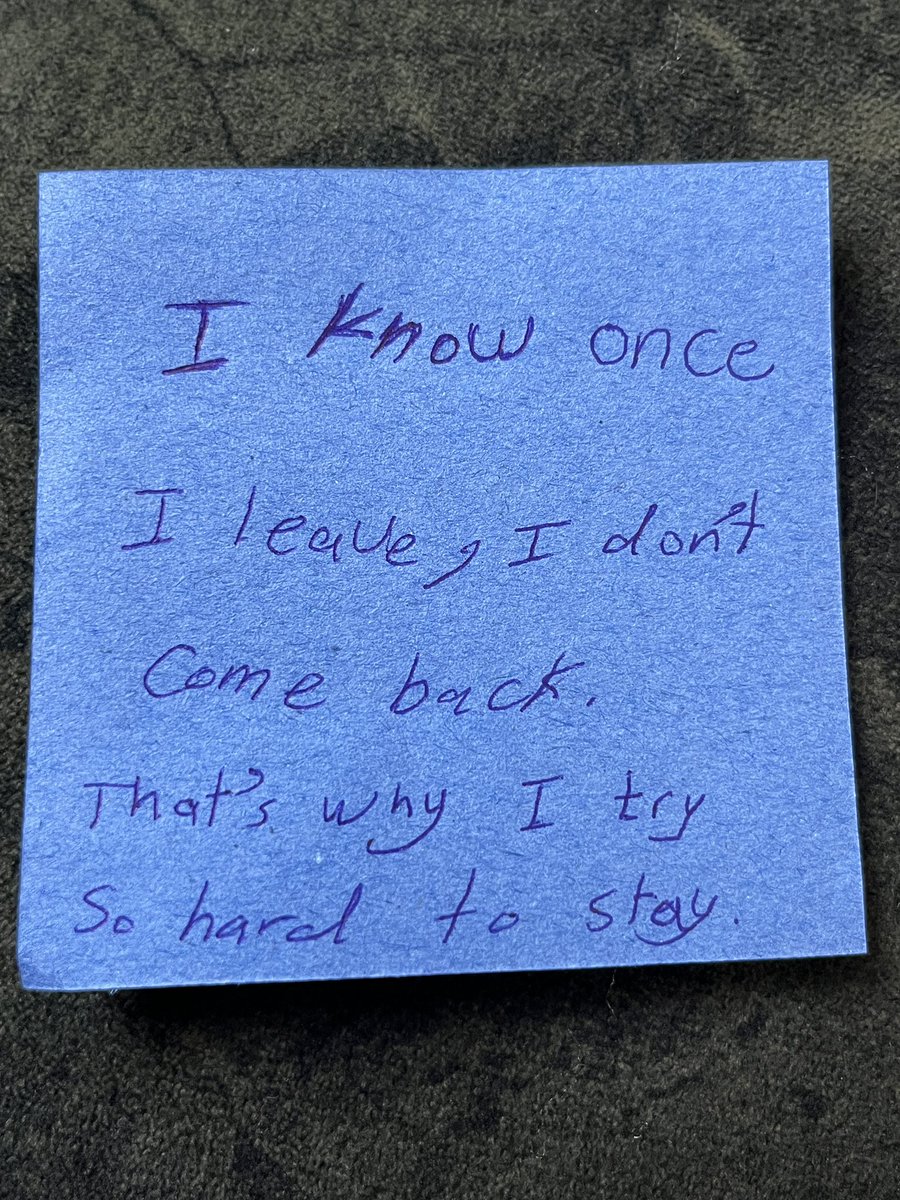 I know once
I leave, I don't
Come back.
That's why I try
So hard to stay.